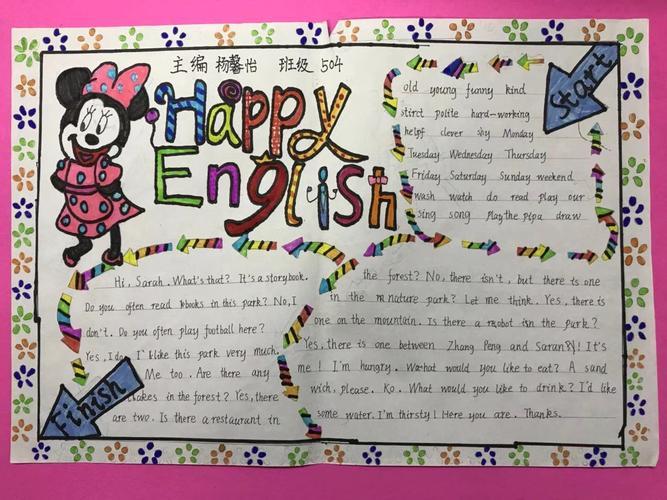 主编 杨馨怡 班级 504
Happy
English
Start
old young funny kind
stirct polite hard-working
helpf clever shy Monday
Tuesday Wednesday Thursday
Friday Saturday Sunday weekend
wash watch do read play our
sing song play the pipa draw
Hi, Sarah. What's that? It's a storybook.
Do you often read books in this park? No, I
don't. Do you often play football here?
Yes, I do. I like this park very much.
Me too. Are there any
lakes in the forest? Yes, there
are two. Is there a restaurant in
the forest? No, there isn't, but there is one
in the nature park? Let me think. Yes, there is
one on the mountain. Is there a robot isn the park?
Yes, there is one between Zhang Peng and Saran! It's
me! I'm hungry. What would you like to eat? A sand
wich, please. Ko. What would you like to drink? I'd like
some water. I'm thirsty! Here you are. Thanks.
Finish